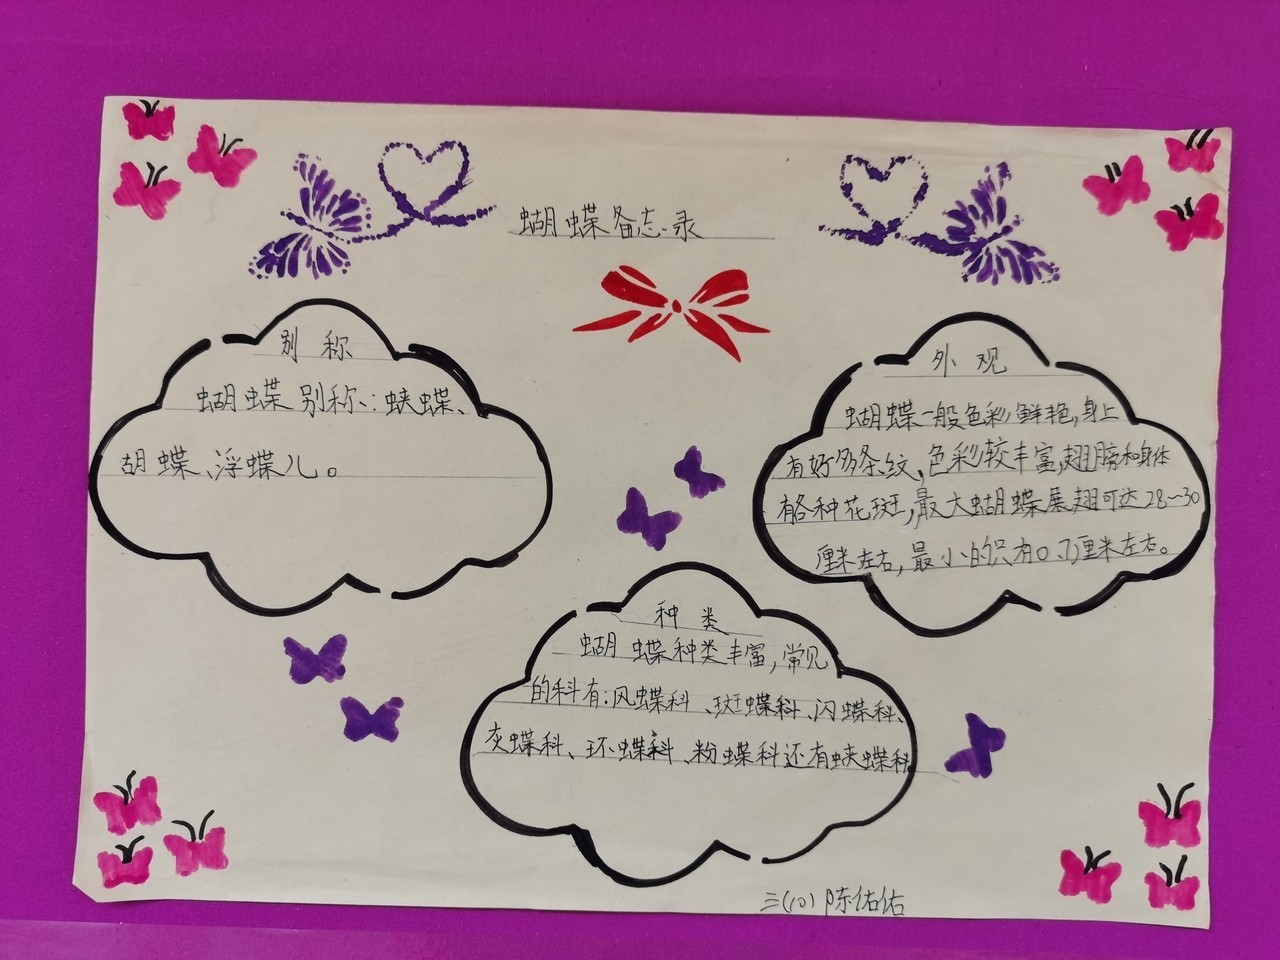 蝴蝶备忘录
别称
蝴蝶别称:蛱蝶、
胡蝶、浮蝶儿。
外观
蝴蝶一般色彩鲜艳,身上
有好多条纹,色彩较丰富,翅膀和身体
有各种花斑,最大蝴蝶展翅可达28~30
厘米左右,最小的只有0.7厘米左右。
种类
蝴蝶种类丰富,常见
的科有:风蝶科、斑蝶科、闪蝶科、
灰蝶科、环蝶科、粉蝶科还有蛱蝶科
三(10)陈佑佑